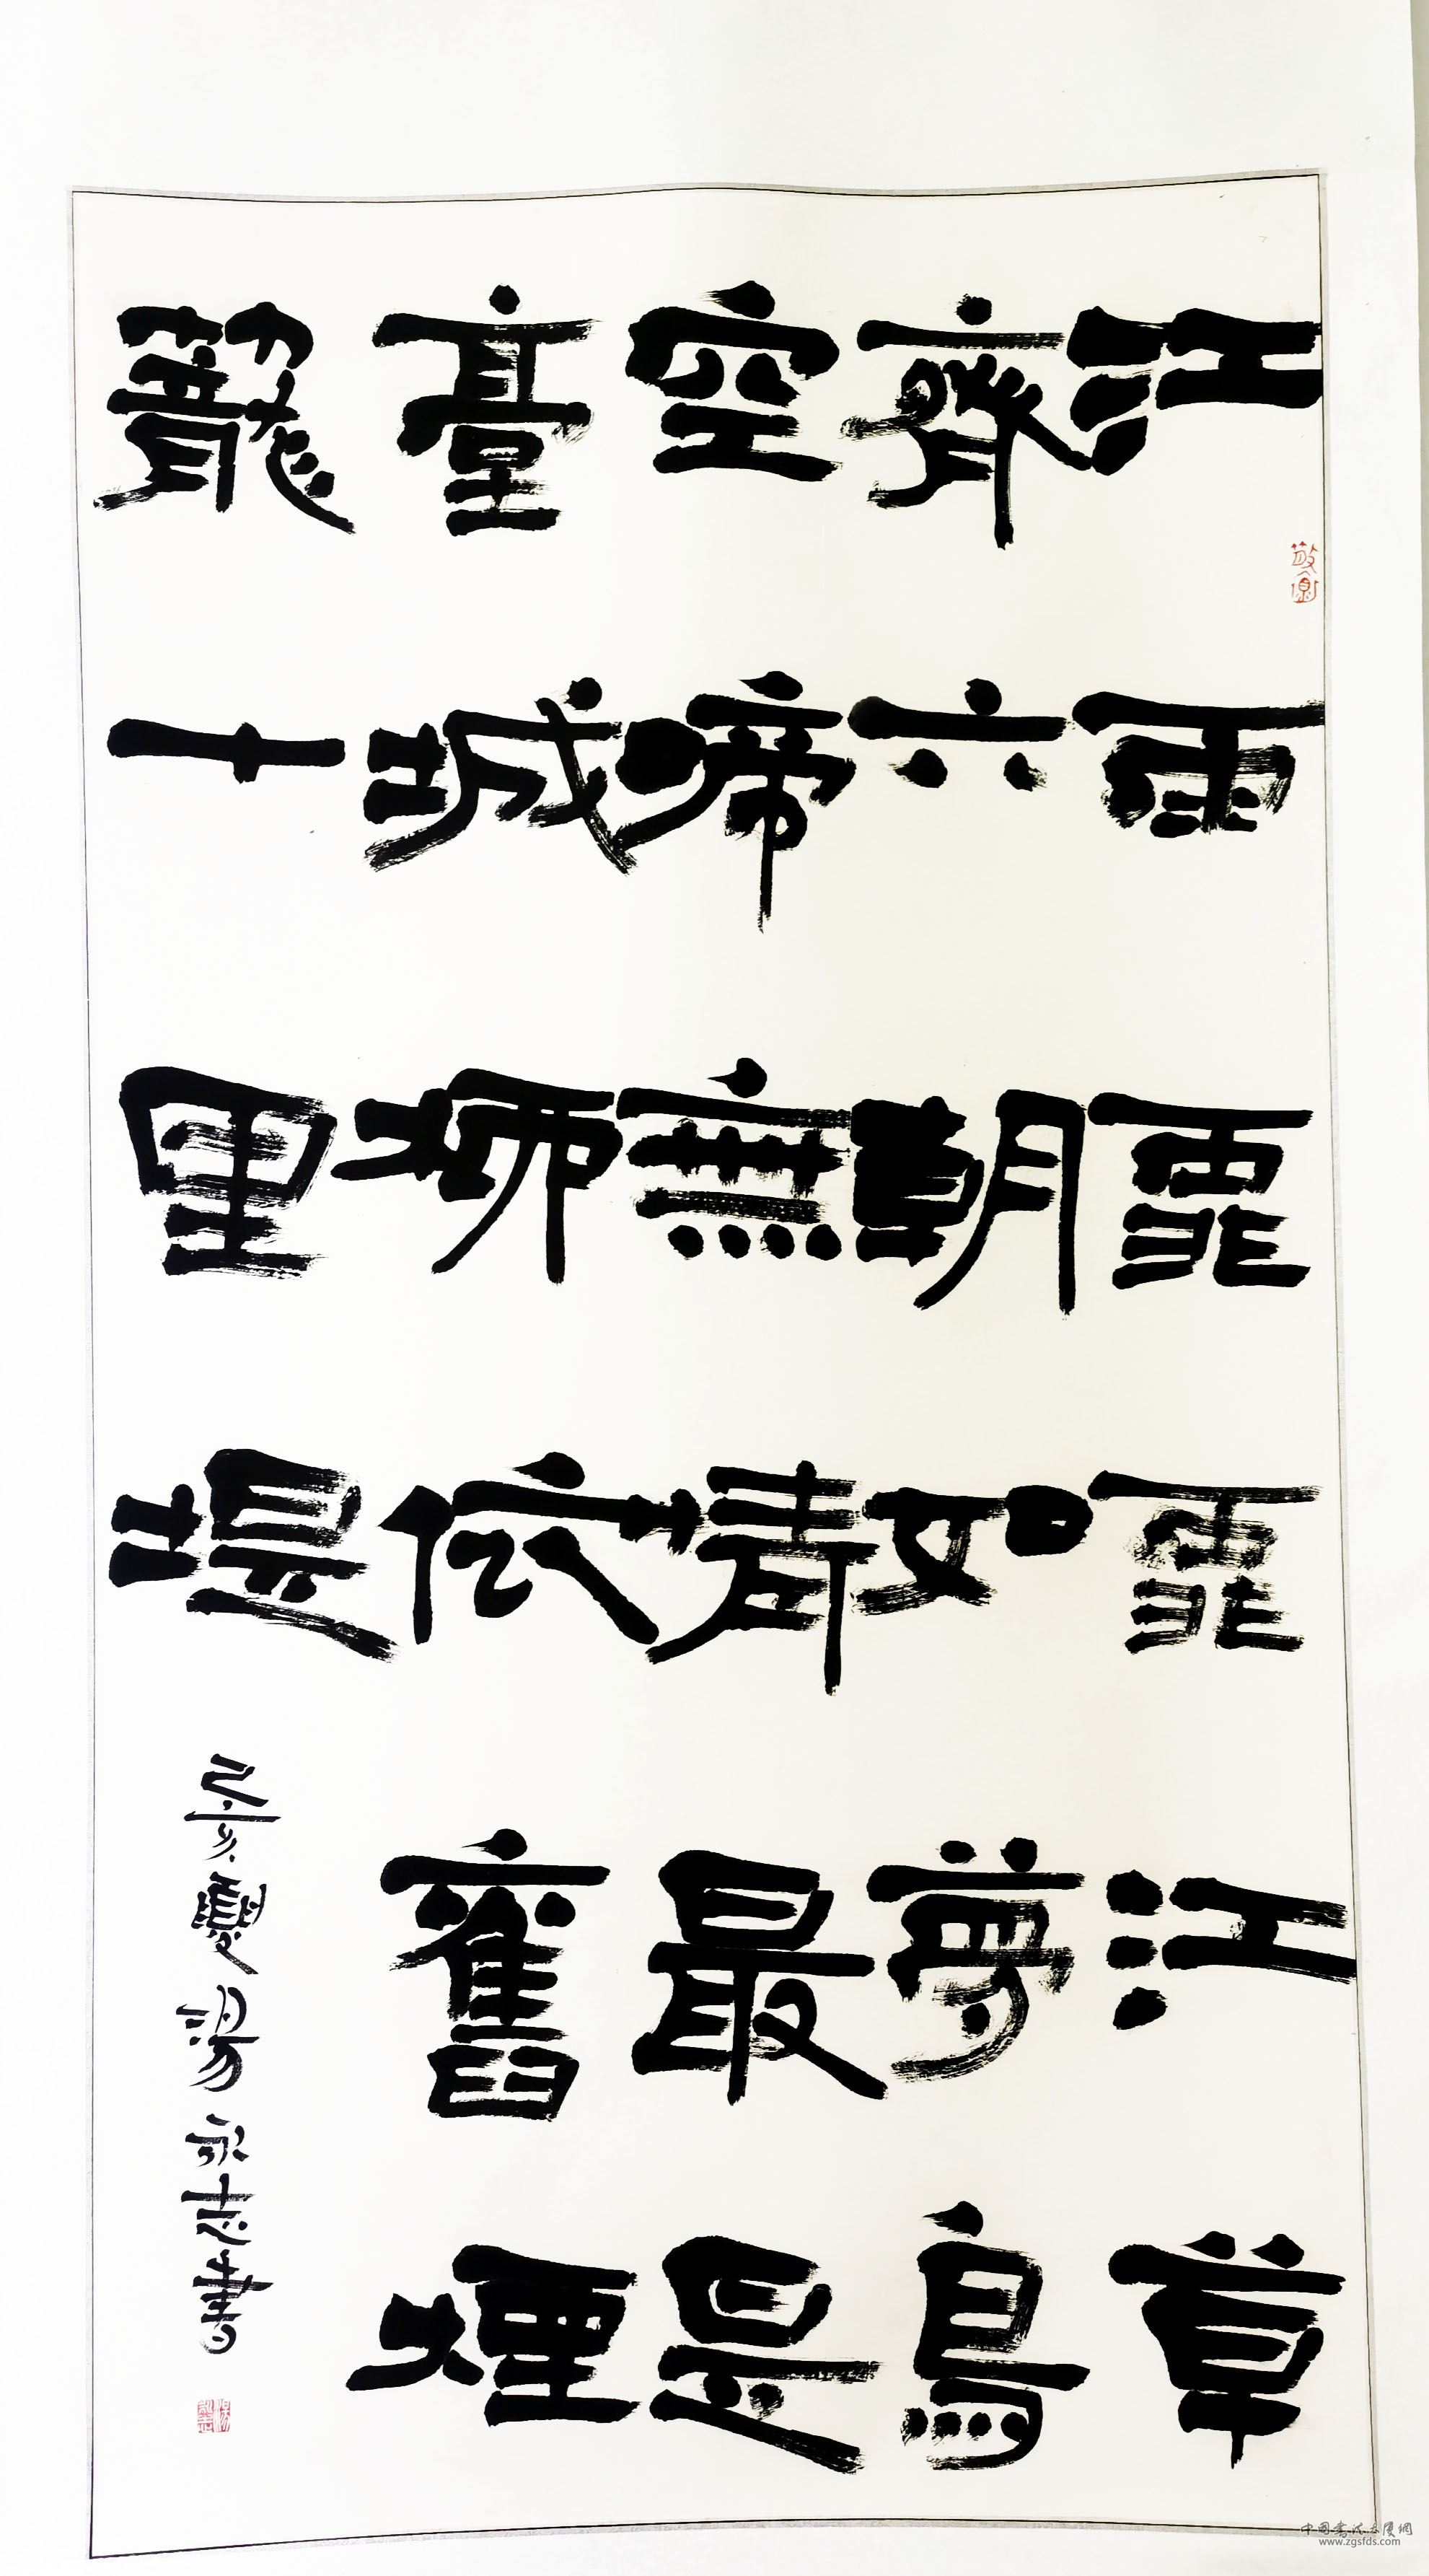 江雨霏霏江草
齊六朝如夢鳥
空啼無情最是
臺城柳依舊煙
籠十里堤
己亥夏湯永志書
中国书法大厦網
www.zgsfds.com